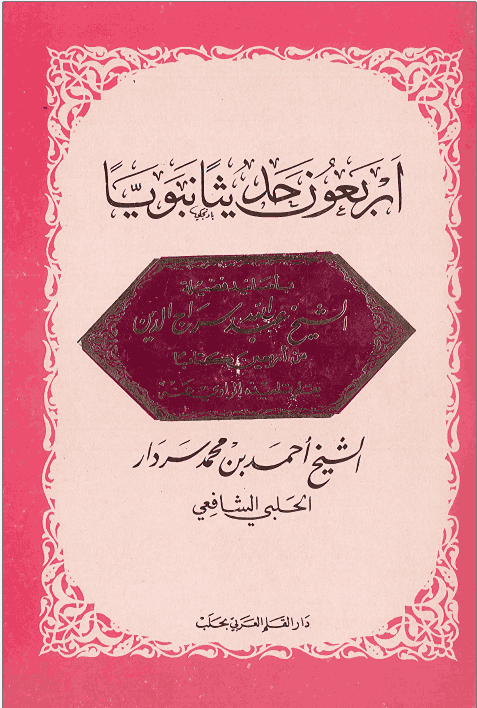 اَرْبَعُونَ حَديثًا نَبَوِيًّا
بأسانيد فضيلة
الشيخ عبد الله سراج الدين
من أربعين كتابًا
الشيخ أحمد بن محمد سردار
الحلبي الشافعي
دار القلم العربي بحلب